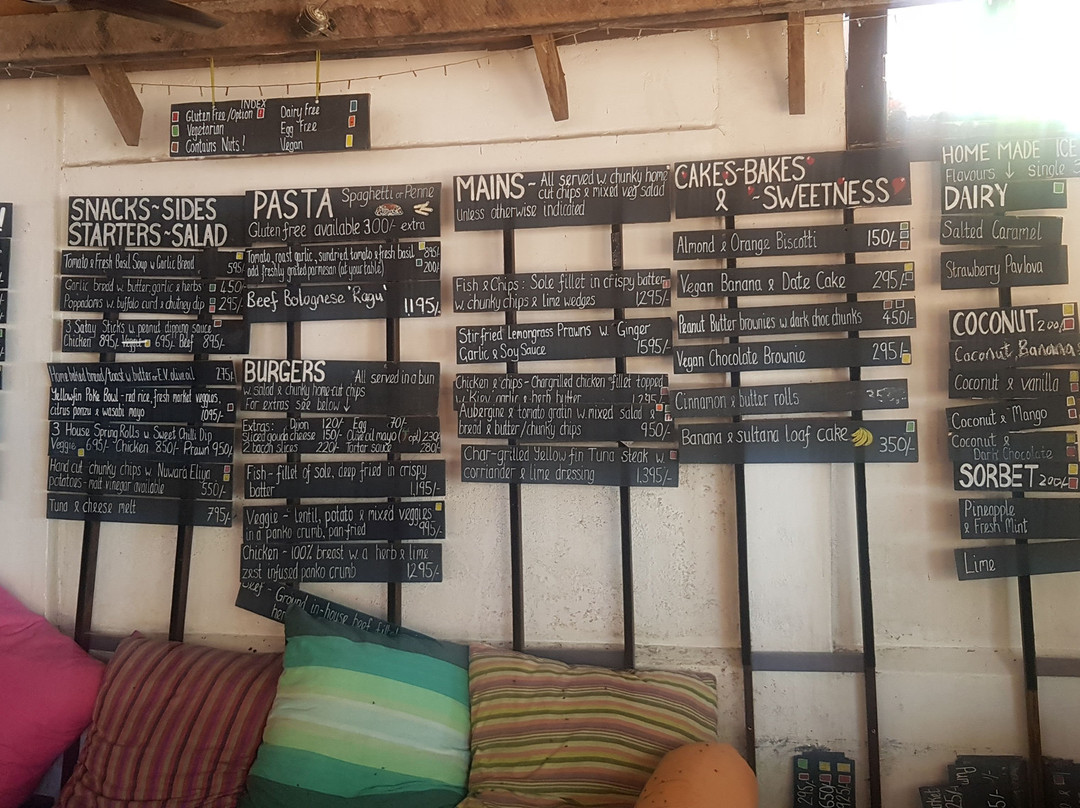 INDEX
Gluten Free/Option
Dairy Free
Vegetarian
Egg Free
Contains Nuts!
Vegan
SNACKS~SIDES
STARTERS~SALAD
Tomato & Fresh Basil Soup w Garlic Bread 595/-
Garlic bread w butter, garlic & herbs 450/-
Poppadoms w. buffalo curd & chutney dip 295/-
3 Satay Sticks w. peanut dipping sauce
Chicken 895/- Veggie 695/- Beef 895/-
Home baked bread/toast w. butter or E.V. olive oil 275/-
Yellowfin Poke Bowl - red rice, fresh market veggies,
citrus ponzu & wasabi mayo 1095/-
3 House Spring Rolls w. Sweet Chilli Dip
Veggie 695/- Chicken 850/- Prawn 950/-
Hand cut chunky chips w. Nuwara Eliya
potatoes - malt vinegar available 550/-
Tuna & cheese melt 795/-
PASTA Spaghetti or Penne
Gluten free available 300/- extra
Tomato, roast garlic, sundried tomato & fresh basil 895/-
add freshly grated parmesan (at your table) 200/-
Beef Bolognese 'Ragu' 1195/-
BURGERS All served in a bun
w. salad & chunky home-cut chips
For extras see below ↓
Extras: Dijon 120/- Egg 70/-
sliced gouda cheese 150/- Olive oil mayo 230/-
2 bacon slices 220/- Tartar sauce 280/-
Fish - fillet of sole, deep fried in crispy
batter 1,195/-
Veggie - lentil, potato & mixed veggies
in a panko crumb, pan fried 995/-
Chicken - 100% breast w. a herb & lime
zest infused panko crumb 1295/-
Beef - Ground in-house beef fillet
MAINS ~ All served w chunky home
cut chips & mixed veg salad
unless otherwise indicated
Fish & Chips: Sole fillet in crispy batter
w. chunky chips & lime wedges 1295/-
Stirfried Lemongrass Prawns w. Ginger
Garlic & Soy Sauce 1595/-
Chicken & chips - Chargrilled chicken fillet topped
garlic & herb butter 1295/-
Aubergine & tomato gratin w. mixed salad &
bread & butter/chunky chips 950/-
Char-grilled Yellowfin Tuna Steak w.
corriander & lime dressing 1,395/-
CAKES-BAKES
& ~SWEETNESS
Almond & Orange Biscotti 150/-
Vegan Banana & Date Cake 295/-
Peanut Butter brownies w dark choc chunks 450/-
Vegan Chocolate Brownie 295/-
Cinnamon & butter rolls
Banana & sultana loaf cake 350/-
HOME MADE ICE
Flavours ↓ single
DAIRY
Salted Caramel
Strawberry Pavlova
COCONUT 200/-
Coconut, Banana
Coconut & vanilla
Coconut & Mango
Coconut &
Dark Chocolate
SORBET 200/-
Pineapple
& Fresh Mint
Lime